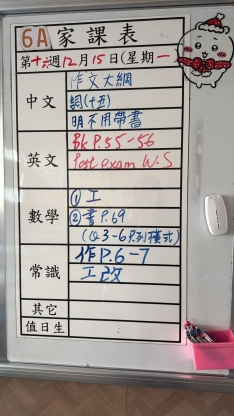 6A 家課表
第十六週12月15日(星期一
中文
作文大綱
詞(十五)
明不用帶書
英文
Bk P.55-56
Post exam W.S
數學
① 工
② 書P.69
(Q3-6只列橫式)
常識
作P.6-7
工改
其它
值日生